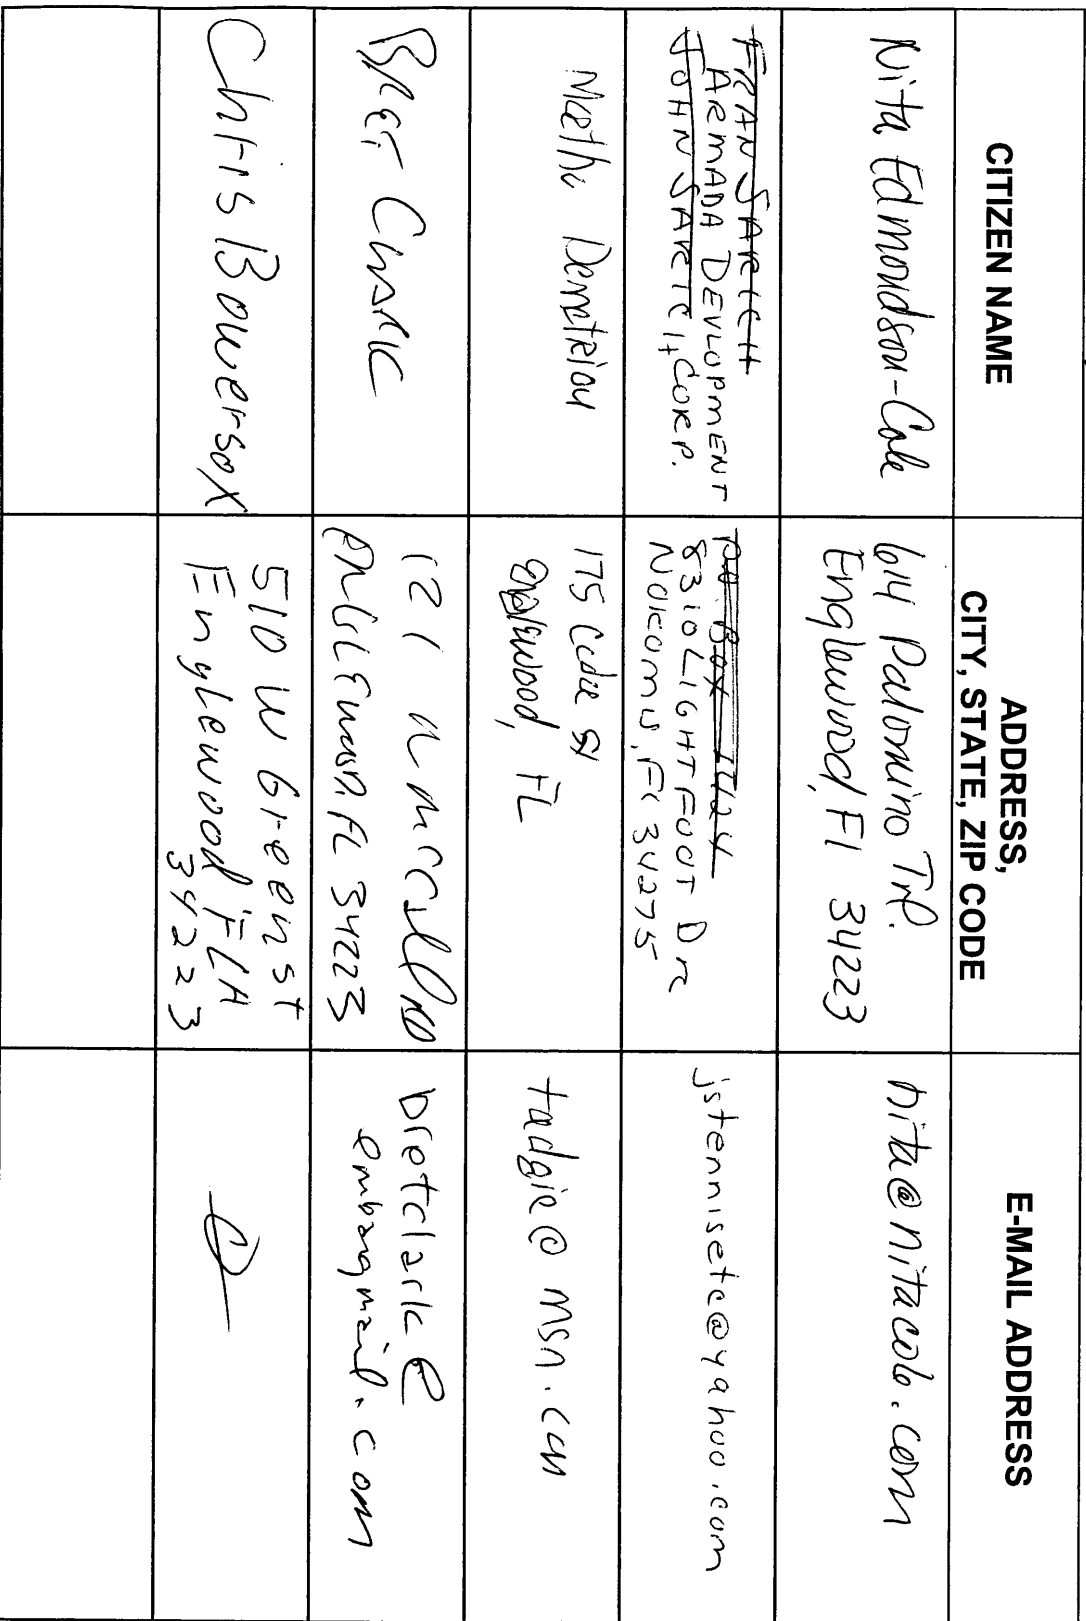 CITIZEN NAME
ADDRESS,
CITY, STATE, ZIP CODE
E-MAIL ADDRESS
Nita Edmondson-Cole
614 Palomino Trl.
Englewood, Fl 34223
nita@nitacole.com
FRAN SARICH
ARMADA DEVLOPMENT
JOHN SARICH, CORP.
P.O. BOX 1424
8310 LIGHTFOOT Dr
NOKOMIS, FL 34275
jstennisetc@yahoo.com
Martha Demetriou
175 Cedar St
Englewood, FL
tadgie@msn.com
BRET CLARK
121 N McCall RD
ENGLEWOOD, FL 34223
bretclark@
embarqmail.com
Chris Bowersox
510 W Green st
Englewood FLA
34223